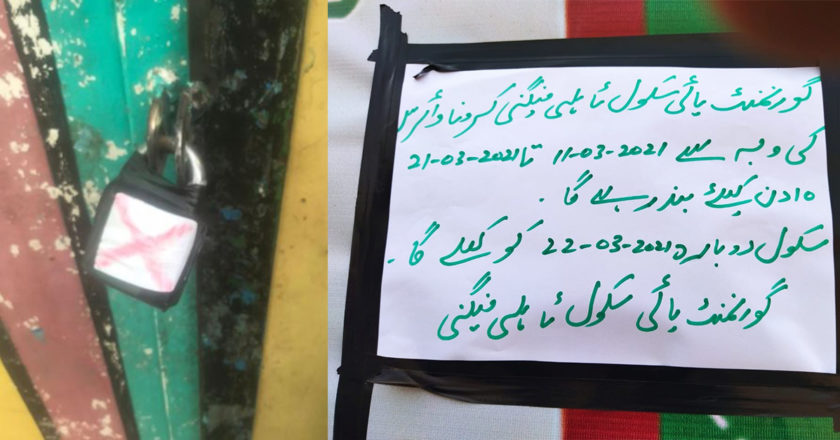 گورنمنٹ ہائی سکول ٹاہلی منگنی کرونا وائرس
کی وجہ سے 11-03-2021 تا 21-03-2021
10 دن کیلئے بند رہے گا۔
سکول دوبارہ 22-03-2021 کو کھلے گا۔
گورنمنٹ ہائی سکول ٹاہلی منگنی